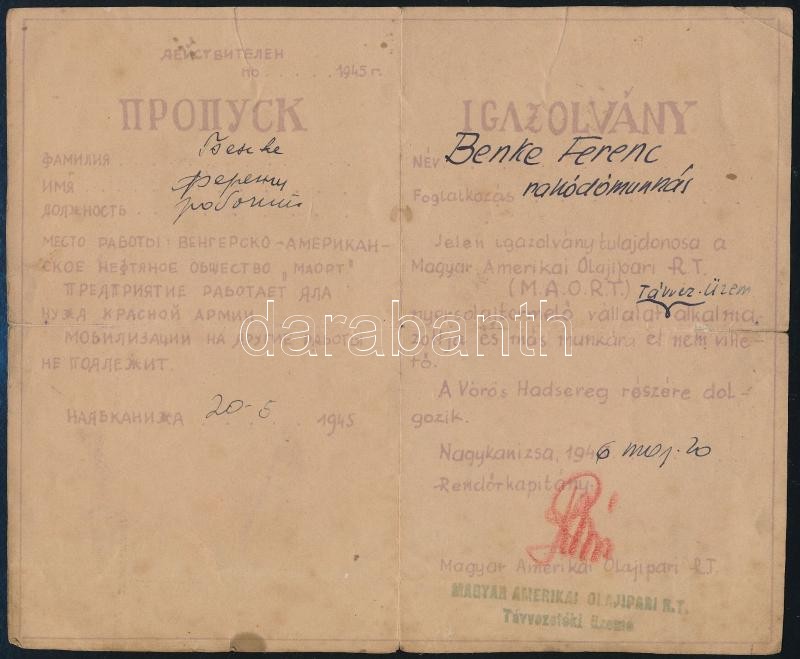 ДЕЙСТВИТЕЛЕН
по ........ 1945 г.
ПРОПУСК
ФАМИЛИЯ ... Бенке
ИМЯ ... Ференц
ДОЛЖНОСТЬ . рабочий
МЕСТО РАБОТЫ: ВЕНГЕРСКО-АМЕРИКАН-
СКОЕ НЕФТЯНОЕ ОБЩЕСТВО "МАОРТ"
ПРЕДПРИЯТИЕ РАБОТАЕТ ДЛА
НУЖД КРАСНОЙ АРМИИ.
МОБИЛИЗАЦИИ НА ДРУГИЕ РАБОТЫ
НЕ ПОДЛЕЖИТ.
НАДЬКАНИЖА 20-5 1945
IGAZOLVÁNY
NÉV Benke Ferenc
Foglalkozás rakódómunkás
Jelen igazolvány tulajdonosa a
Magyar Amerikai Olajipari R.T.
(M.A.O.R.T.) Távvez. üzem
vállalat alkalma-
zottja és más munkára el nem vihe-
tő.
A Vörös Hadsereg részére dol-
gozik.
Nagykanizsa, 1946 máj. 20
Rendőrkapitány.
Magyar Amerikai Olajipari R.T.
MAGYAR AMERIKAI OLAJIPARI R.T.
Távvezetéki üzeme
darabanth